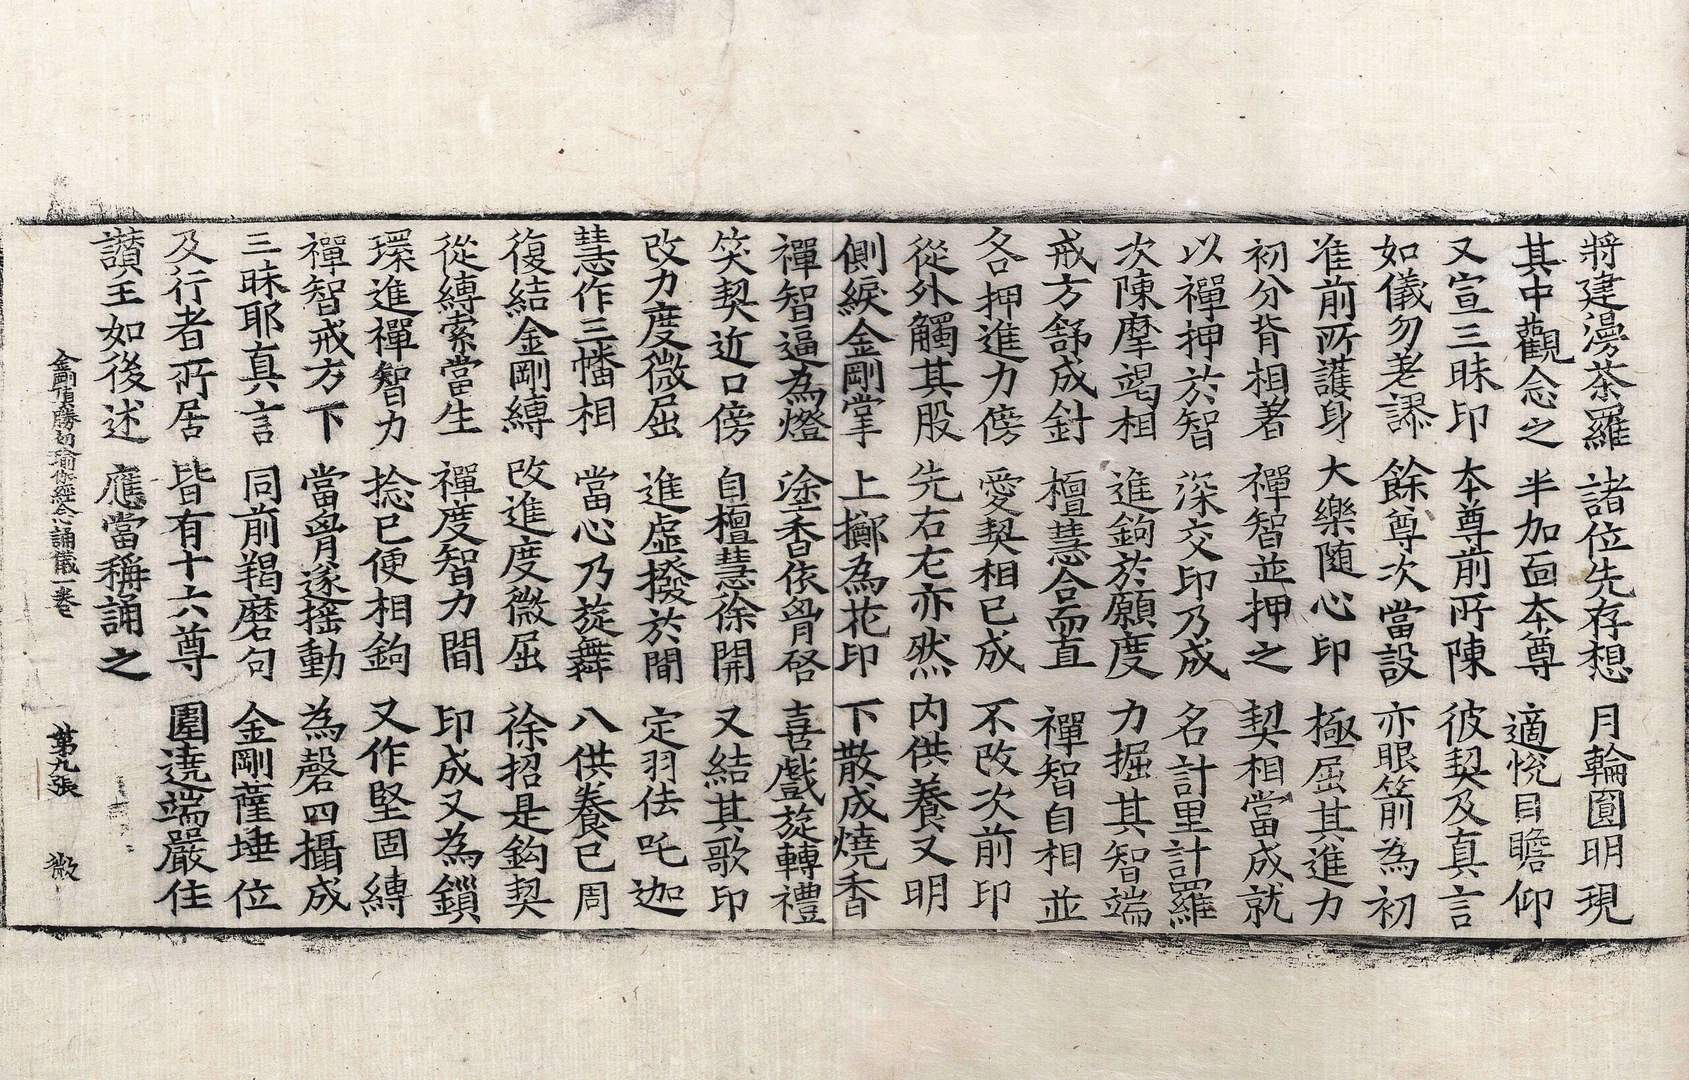 將建漫荼羅 諸位先存想 月輪圓明現
其中觀念之 半加面本尊 適悅目瞻仰
又宣三昧印 本尊前所陳 彼契及真言
如儀勿差謬 餘尊次當設 亦眼箭為初
准前所護身 大樂隨心印 極屈其進力
初分背相著 禪智並押之 契相當成就
以禪押於智 深交印乃成 名計里計羅
次陳摩竭相 進鉤於願度 力掘其智端
戒方舒成針 檀慧合而直 禪智自相並
各押進力傍 愛契相已成 不改次前印
從外觸其股 先右左亦然 內供養又明
側緱金剛掌 上擲為花印 下散成燒香
禪智逼為燈 塗香依胷啓 喜戲旋轉禮
笑契近口傍 自檀慧徐開 又結其歌印
改力度微屈 進虛撥於間 定羽佉吒迦
慧作三幡相 當心乃旋舞 八供養已周
復結金剛縛 改進度微屈 徐招是鈎契
從縛索當生 禪度智力間 印成又為鎖
環進禪智力 捻已便相鉤 又作堅固縛
禪智戒方下 當胷遂搖動 為磬四攝成
三昧耶真言 同前羯磨句 金剛薩埵位
及行者所居 皆有十六尊 圍遶端嚴住
讚王如後述 應當稱誦之
金剛頂勝初瑜伽經念誦儀一卷 第九張 微